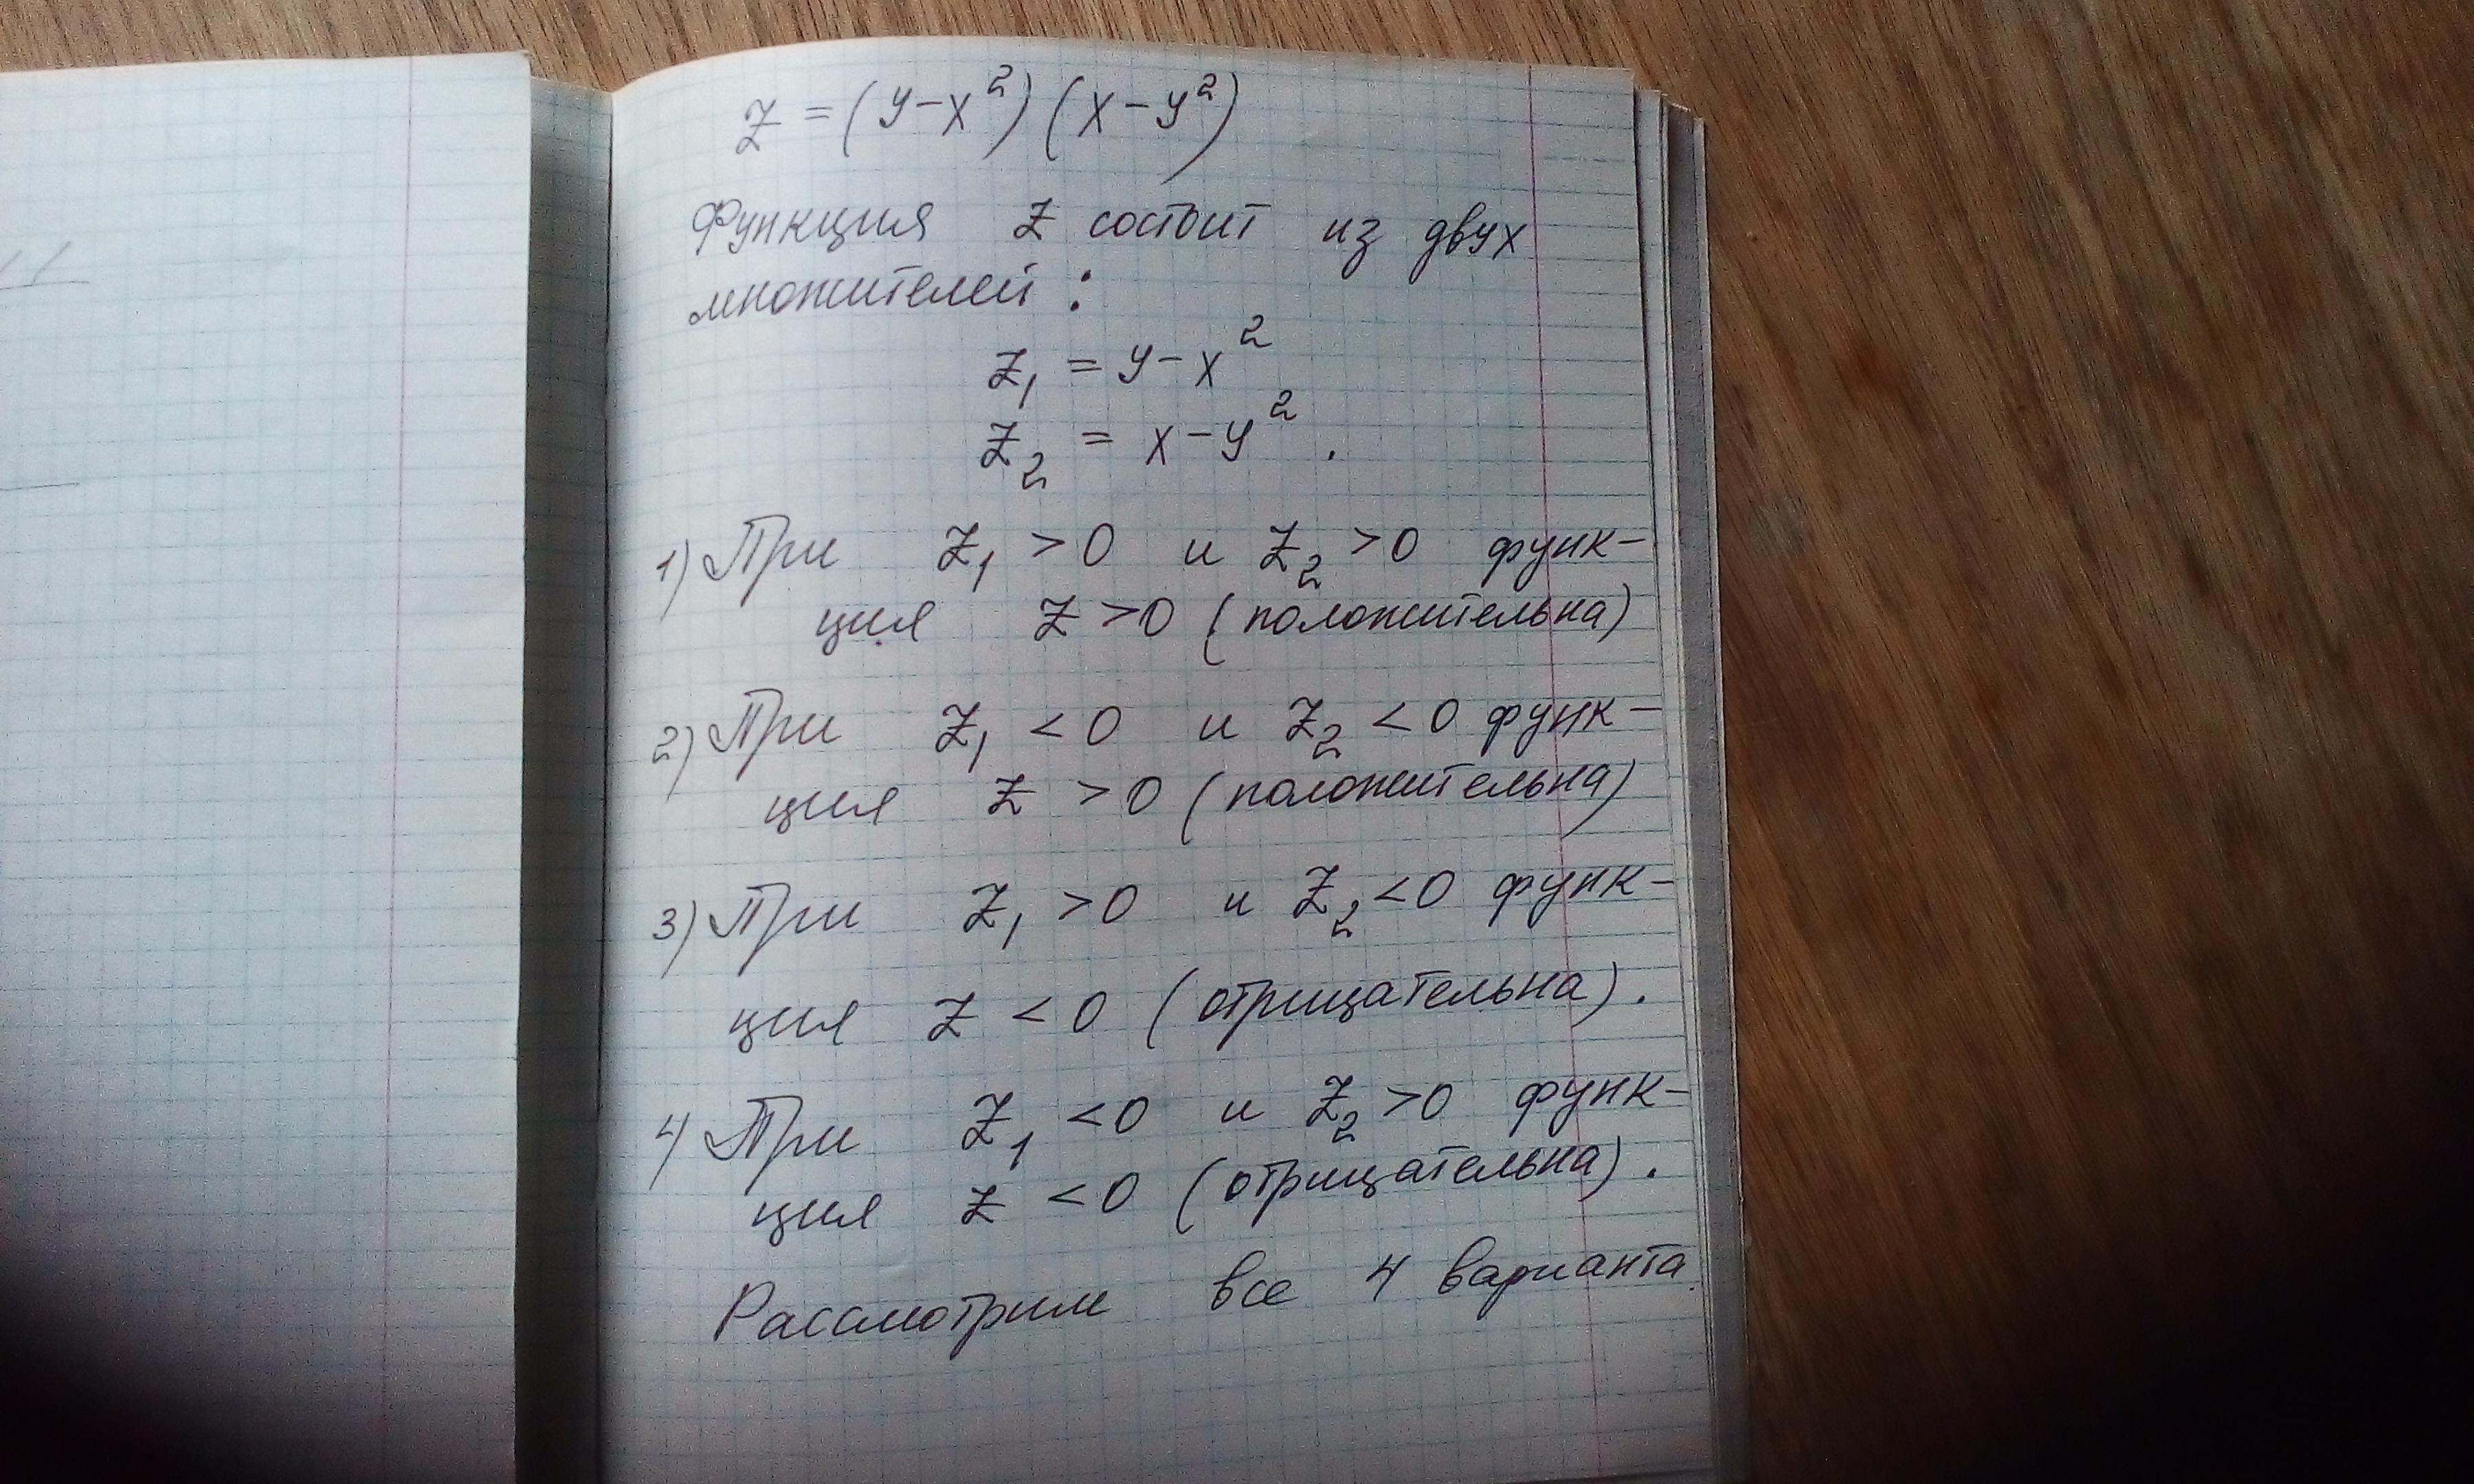 z = (y - x²)(x - y²)
Функция z состоит из двух
множителей:
z₁ = y - x²
z₂ = x - y².
1) При z₁ > 0 и z₂ > 0 функ-
ция z > 0 (положительна)
2) При z₁ < 0 и z₂ < 0 функ-
ция z > 0 (положительна)
3) При z₁ > 0 и z₂ < 0 функ-
ция z < 0 (отрицательна).
4) При z₁ < 0 и z₂ > 0 функ-
ция z < 0 (отрицательна).
Рассмотрим все 4 варианта.